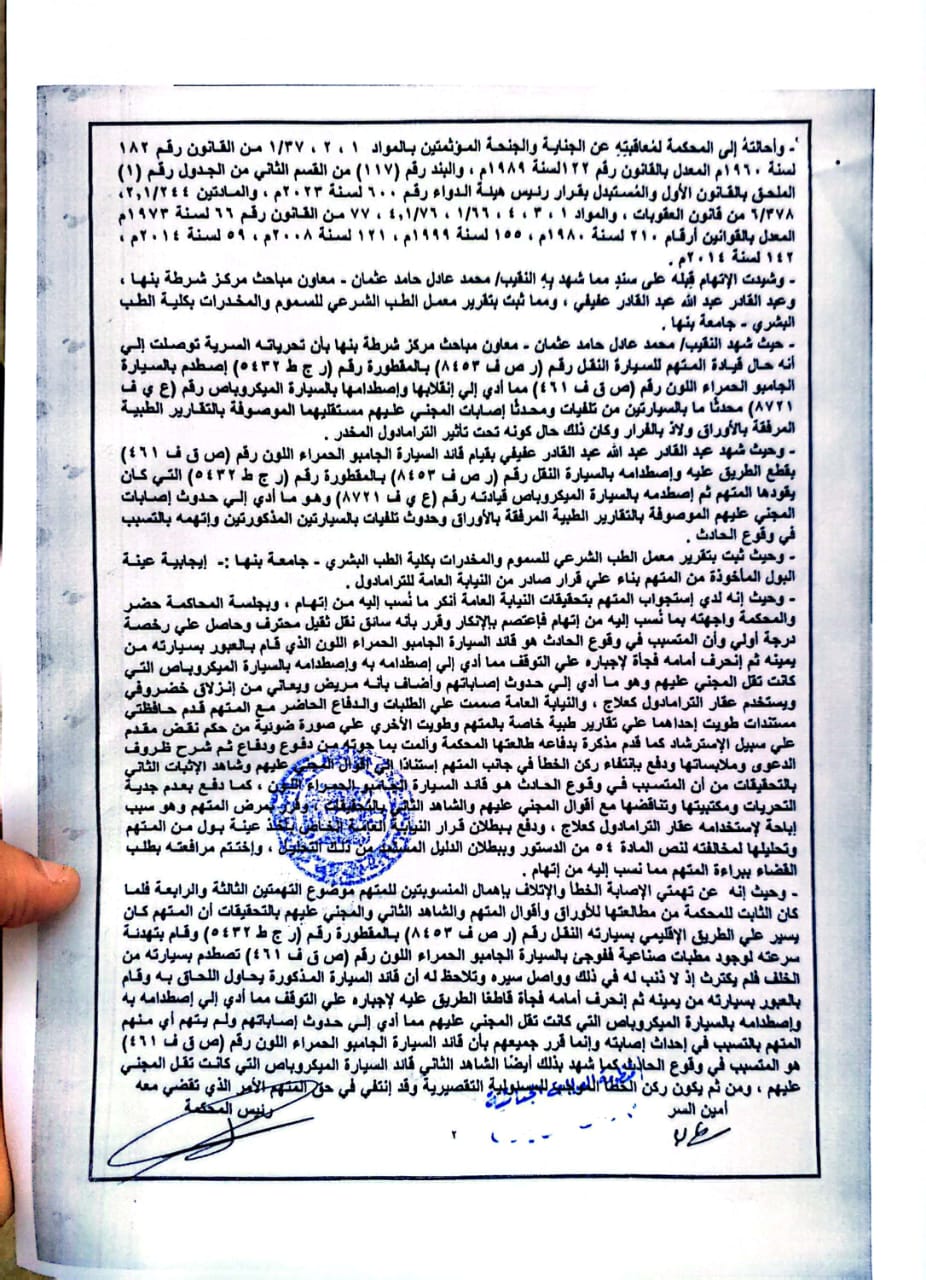 - وأحالتهُ إلى المحكمة لمُعاقبتِهِ عن الجناية والجنحة المؤثمتين بالمواد ١ ، ٢ ، ١/٣٧ من القانون رقم ١٨٢
لسنة ١٩٦٠م المعدل بالقانون رقم ١٢٢لسنة ١٩٨٩م ، والبند رقم (١١٧) من القسم الثاني من الجدول رقم (١)
الملحق بالقانون الأول والمُستبدل بقرار رئيس هيئة الدواء رقم ٦٠٠ لسنة ٢٠٢٣م ، والمادتين ٢,١/٢٤٤ ،
٦/٣٧٨ من قانون العقوبات ، والمواد ١ ، ٣ ، ٤ ، ١/٦٦ ، ٤,١/٧٦ ، ٧٧ من القانون رقم ٦٦ لسنة ١٩٧٣م
المعدل بالقوانين أرقام ٢١٠ لسنة ١٩٨٠م ، ١٥٥ لسنة ١٩٩٩م ، ١٢١ لسنة ٢٠٠٨م ، ٥٩ لسنة ٢٠١٤م ،
١٤٢ لسنة ٢٠١٤م .
- وشيدت الإتهام قِبله على سندٍ مما شهد بِهِ النقيب/ محمد عادل حامد عثمان - معاون مباحث مركز شرطة بنها ،
وعبد القادر عبد الله عبد القادر عفيفي ، ومما ثبت بتقرير معمل الطب الشرعي للسموم والمخدرات بكلية الطب
البشري - جامعة بنها .
- حيث شهد النقيب/ محمد عادل حامد عثمان - معاون مباحث مركز شرطة بنها بأن تحرياته السرية توصلت إلي
أنه حال قيادة المتهم للسيارة النقل رقم (ر ص ف ٨٤٥٣) بالمقطورة رقم (ر ج ط ٥٤٣٢) إصطدم بالسيارة
الجامبو الحمراء اللون رقم (ص ق ف ٤٦١) مما أدي إلي إنقلابها وإصطدامها بالسيارة الميكروباص رقم (ع ي ف
٨٧٢١) محدثًا ما بالسيارتين من تلفيات ومحدثًا إصابات المجني عليهم مستقليهما الموصوفة بالتقارير الطبية
المرفقة بالأوراق ولاذ بالفرار وكان ذلك حال كونه تحت تأثير الترامادول المخدر .
- وحيث شهد عبد القادر عبد الله عبد القادر عفيفي بقيام قائد السيارة الجامبو الحمراء اللون رقم (ص ق ف ٤٦١)
بقطع الطريق عليه وإصطدامه بالسيارة النقل رقم (ر ص ف ٨٤٥٣) بالمقطورة رقم (ر ج ط ٥٤٣٢) التي كان
يقودها المتهم ثم إصطدمه بالسيارة الميكروباص قيادته رقم (ع ي ف ٨٧٢١) وهو ما أدي إلي حدوث إصابات
المجني عليهم الموصوفة بالتقارير الطبية المرفقة بالأوراق وحدوث تلفيات بالسيارتين المذكورتين وإتهمه بالتسبب
في وقوع الحادث .
- وحيث ثبت بتقرير معمل الطب الشرعي للسموم والمخدرات بكلية الطب البشري - جامعة بنها :- إيجابية عينة
البول المأخوذة من المتهم بناء علي قرار صادر من النيابة العامة للترامادول .
- وحيث إنه لدي إستجواب المتهم بتحقيقات النيابة العامة أنكر ما نُسب إليه من إتهام ، وبجلسة المحاكمة حضر
والمحكمة واجهته بما نُسب إليه من إتهام فإعتصم بالإنكار وقرر بأنه سائق نقل ثقيل محترف وحاصل علي رخصة
درجة أولي وأن المتسبب في وقوع الحادث هو قائد السيارة الجامبو الحمراء اللون الذي قام بالعبور بسيارته من
يمينه ثم إنحرف أمامه فجأة لإجباره علي التوقف مما أدي إلي إصطدامه به وإصطدامه بالسيارة الميكروباص التي
كانت تقل المجني عليهم وهو ما أدي إلي حدوث إصاباتهم وأضاف بأنه مريض ويعاني من إنزلاق خضروفي
ويستخدم عقار الترامادول كعلاج ، والنيابة العامة صممت علي الطلبات والدفاع الحاضر مع المتهم قدم حافظتي
مستندات طويت إحداهما علي تقارير طبية خاصة بالمتهم وطويت الأخري علي صورة ضوئية من حكم نقض مقدم
علي سبيل الإسترشاد كما قدم مذكرة بدفاعه طالعتها المحكمة وألمت بما حوته من دفوع ودفاع ثم شرح ظروف
الدعوى وملابساتها ودفع بإنتفاء ركن الخطأ في جانب المتهم إستنادًا إلي أقوال المجني عليهم وشاهد الإثبات الثاني
بالتحقيقات من أن المتسبب في وقوع الحادث هو قائد السيارة الجامبو الحمراء اللون ، كما دفع بعدم جدية
التحريات ومكتبيتها وتناقضها مع أقوال المجني عليهم والشاهد الثاني بالتحقيقات ، وقرر بمرض المتهم وهو سبب
إباحة لإستخدامه عقار الترامادول كعلاج ، ودفع ببطلان قرار النيابة العامة الخاص بأخذ عينة بول من المتهم
وتحليلها لمخالفته لنص المادة ٥٤ من الدستور وببطلان الدليل المستمد من ذلك التحليل ، وإختتم مرافعته بطلب
القضاء ببراءة المتهم مما نسب إليه من إتهام .
- وحيث إنه عن تهمتي الإصابة الخطأ والإتلاف بإهمال المنسوبتين للمتهم موضوع التهمتين الثالثة والرابعة فلما
كان الثابت للمحكمة من مطالعتها للأوراق وأقوال المتهم والشاهد الثاني والمجني عليهم بالتحقيقات أن المتهم كان
يسير علي الطريق الإقليمي بسيارته النقل رقم (ر ص ف ٨٤٥٣) بالمقطورة رقم (ر ج ط ٥٤٣٢) وقام بتهدئة
سرعته لوجود مطبات صناعية ففوجئ بالسيارة الجامبو الحمراء اللون رقم (ص ق ف ٤٦١) تصطدم بسيارته من
الخلف فلم يكترث إذ لا ذنب له في ذلك وواصل سيره وتلاحظ له أن قائد السيارة المذكورة يحاول اللحاق به وقام
بالعبور بسيارته من يمينه ثم إنحرف أمامه فجأة قاطعًا الطريق عليه لإجباره علي التوقف مما أدي إلي إصطدامه به
وإصطدامه بالسيارة الميكروباص التي كانت تقل المجني عليهم مما أدي إلى حدوث إصاباتهم ولم يتهم أي منهم
المتهم بالتسبب في إحداث إصابته وإنما قرر جميعهم بأن قائد السيارة الجامبو الحمراء اللون رقم (ص ق ف ٤٦١)
هو المتسبب في وقوع الحادث كما شهد بذلك أيضًا الشاهد الثاني قائد السيارة الميكروباص التي كانت تقل المجني
عليهم ، ومن ثم يكون ركن الخطأ الموجب للمسئولية التقصيرية وقد إنتفي في حق المتهم الأمر الذي تقضي معه
أمين السر
رئيس المحكمة
٢